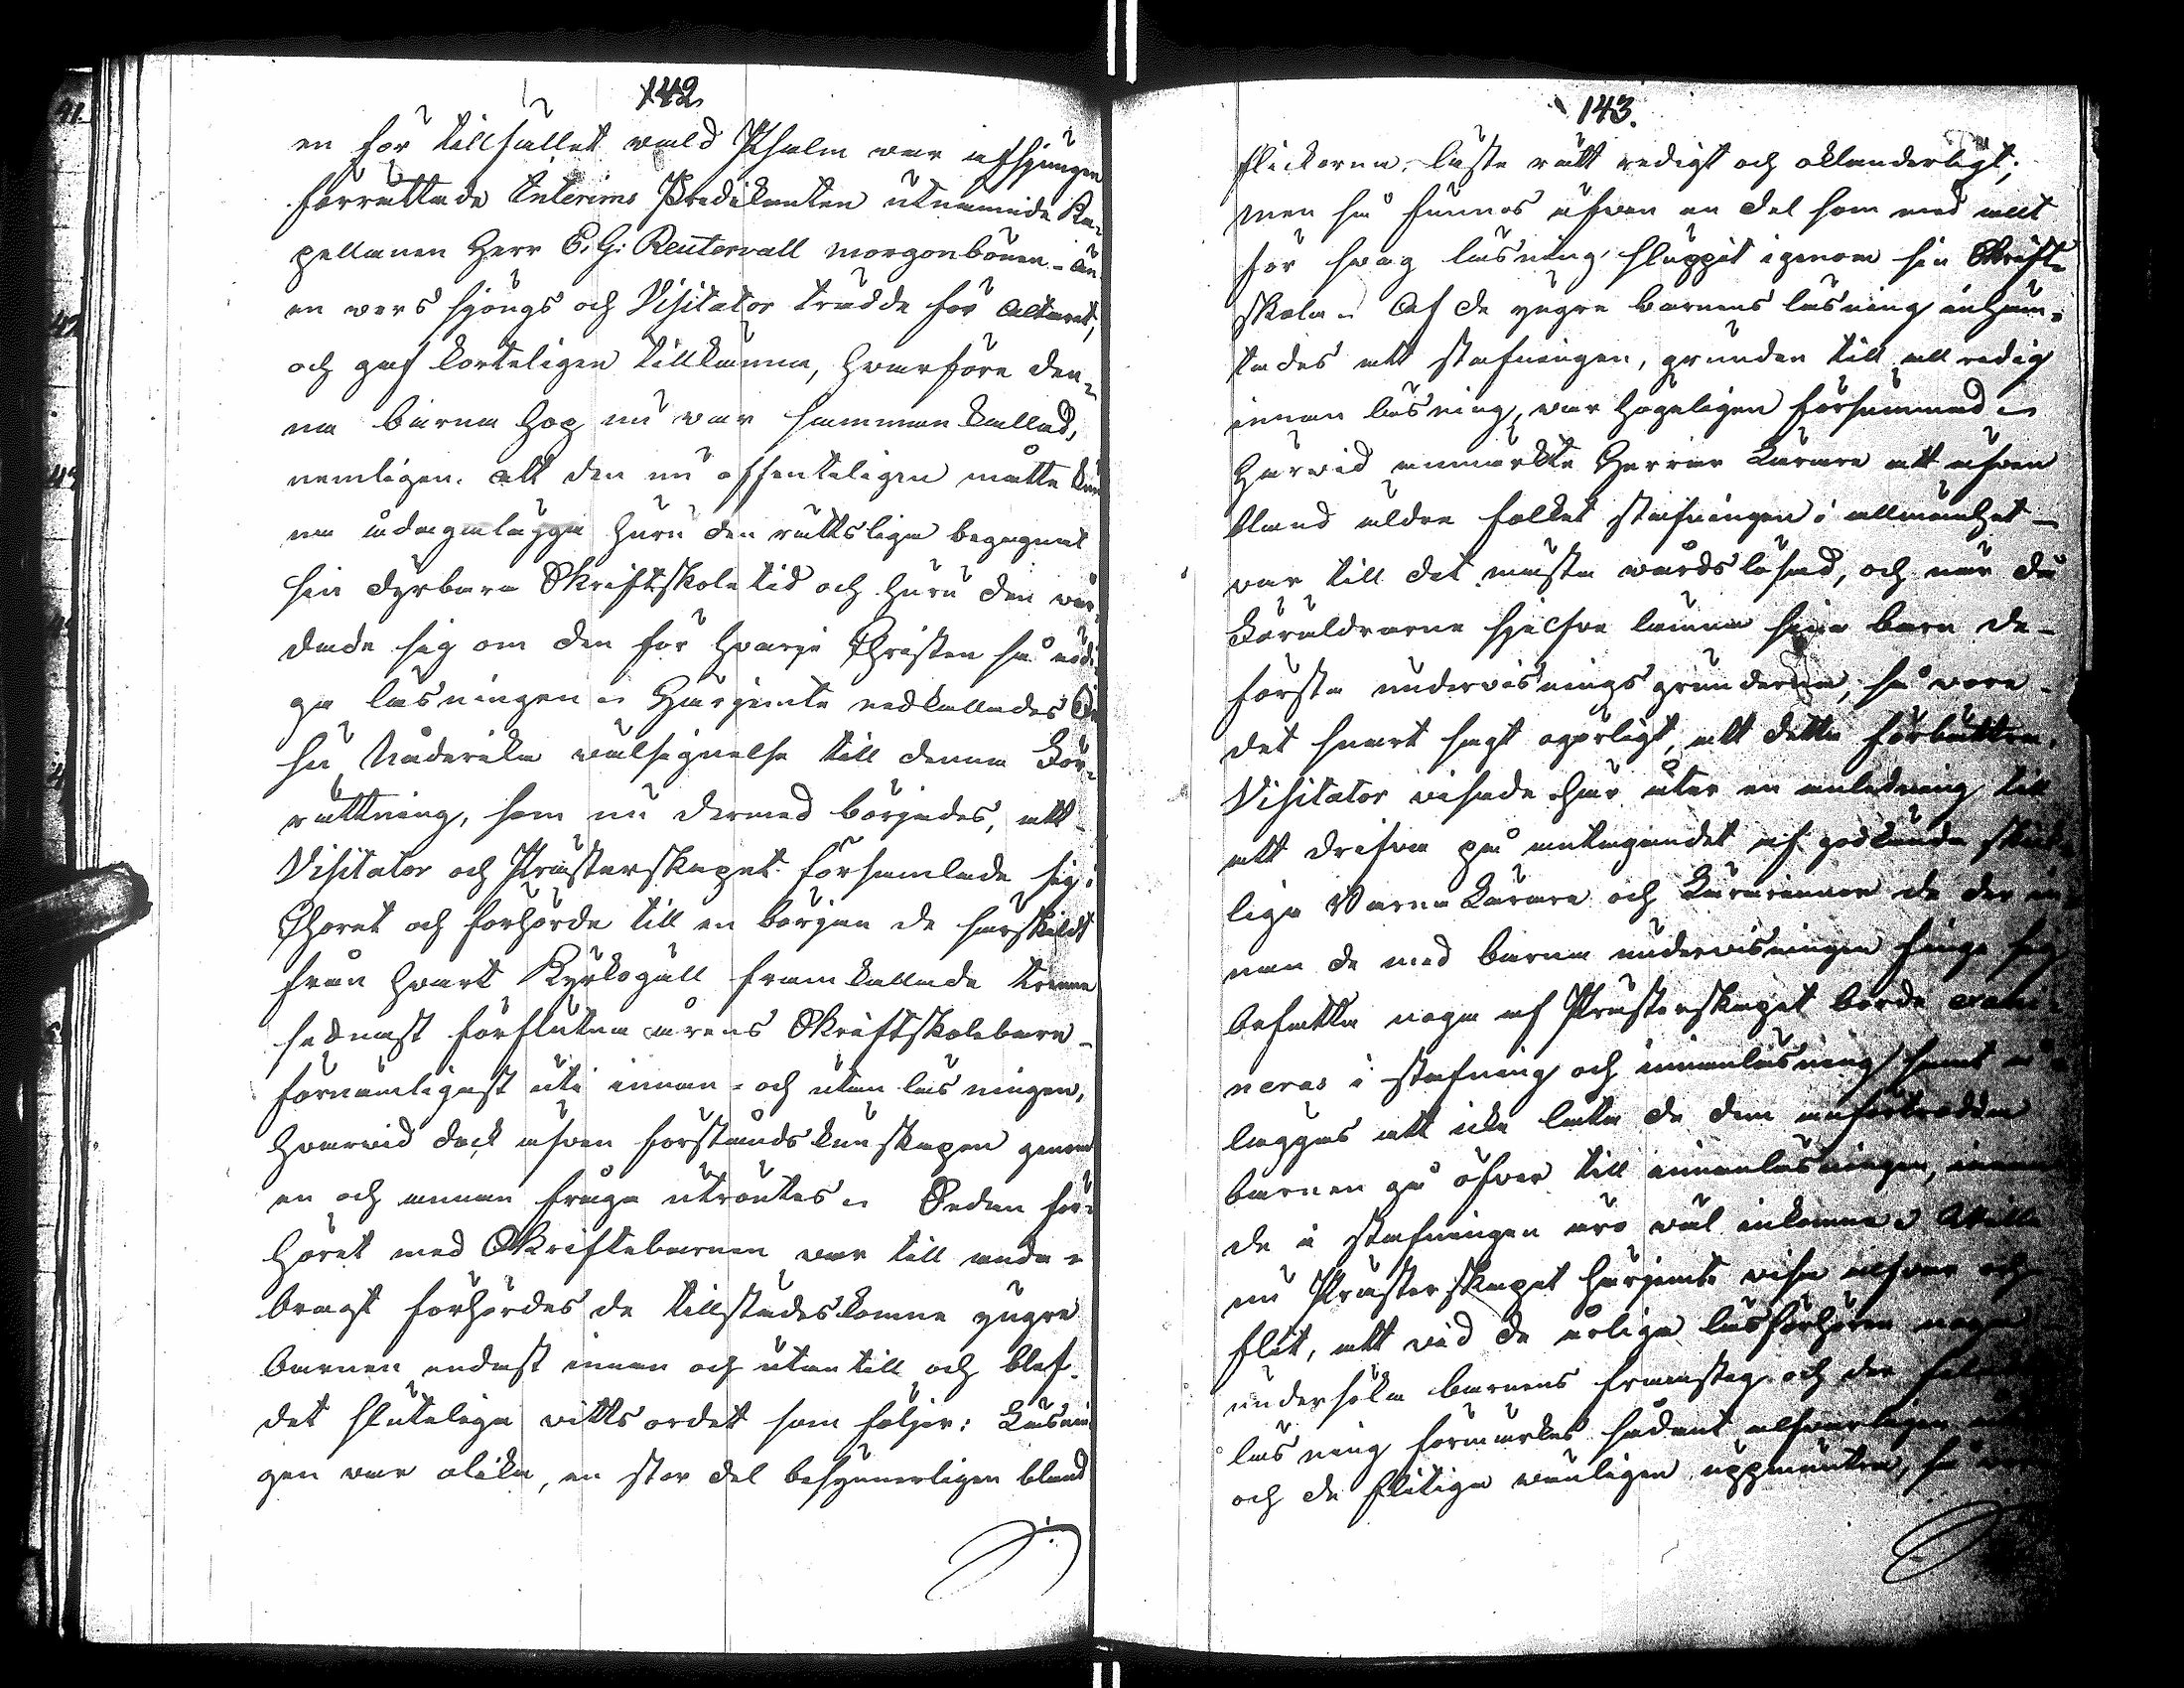 142.
en för tillfället wald Psalm war afsjungen
förrättade Interims Predikanten utnämnde Ka-
pellanen Herr C. G. Reuterwall morgonbönen - än
en vers sjöngs och Visitator trädde för Altaret,
och gaf korteligen tillkänna, hwarföre den-
na barna hop nu war samman kallad,
nemligen att den nu offenteligen måtte kun
na ådagalägga huru den rätteliga begagnat
sin dyrbara Skriftskole tid och huru den wår-
dade sig om den för hwarje Christen så nödi-
ga läsningen. Härjemte nedkallades
Nåderika wälsignelse till denna För-
rättning, som nu dermed börjades, att
Visitator och Prästerskapet församlade sig i
Choret och förhörde till en början de särskildt
från hwart Kyrkogäll framkallade trenne
sednast förflutna årens Skriftskolebarn
förnämligast uti innan- och utan läsningen,
hwarwid dock äfwen förstånds kunskapen genom
en och annan fråga utröntes. Sedan för-
höret med Skriftebarnen war till ända
bragt förhördes de tillstädeskomne yngre
barnen endast innan och utantill och blef
det slutliga witts ordet som följer: Läsnin
gen war olika, en stor del besynnerligen bland
143.
flickorna, läste rätt redigt och oklanderligt;
men så funnos äfwen en del som med allt
för swag läsning sluppit igenom sin Skrift-
skola. Af de yngre barnens läsning inhäm-
tades att stafningen, grunden till all redig
innan läsning, war högeligen försummad.
Härwid anmärkte Herrar Lärare att äfwen
bland äldre folket stafningen i allmänhet
war till det mästa wårdslösad, och när då
Föräldrarne sjelfwe lämna sina barn de
första underwisnings grunderna, så wore
det snart sagt ogörligt, att detta förbättra.
Visitator wisade här åter en anledning till
att drifwa på antagandet af godkända skick-
liga Barna Lärare och Lärarinnor de der in-
nan de med barna underwisningen finge sig
befatta noga af Prästerskapet borde exami-
neras i stafning och innanläsning samt å-
läggas att icke låta de dem anförtrodda
barnen gå öfwer till innanläsningen, innan
de i stafningen äro wäl inkomne. Wille
nu Prästerskapet härjemte wisa alfwar och
flit, att wid de årliga läsförhören noga
undersöka barnens framsteg och der
läsning förmärkes sådant alfwarligen
och de flitiga wänligen uppmuntra, så